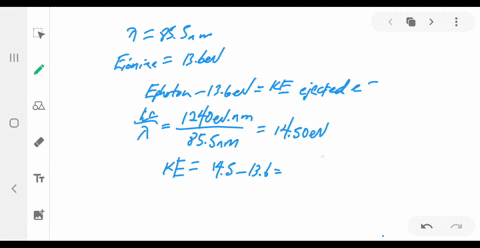 λ = 85.5nm
Eionize = 13.6eV
Ephoton - 13.6eV = KE ejected e⁻
hc/λ = 1240eV.nm/85.5nm = 14.50eV
KE = 14.5 - 13.6 =
Tт